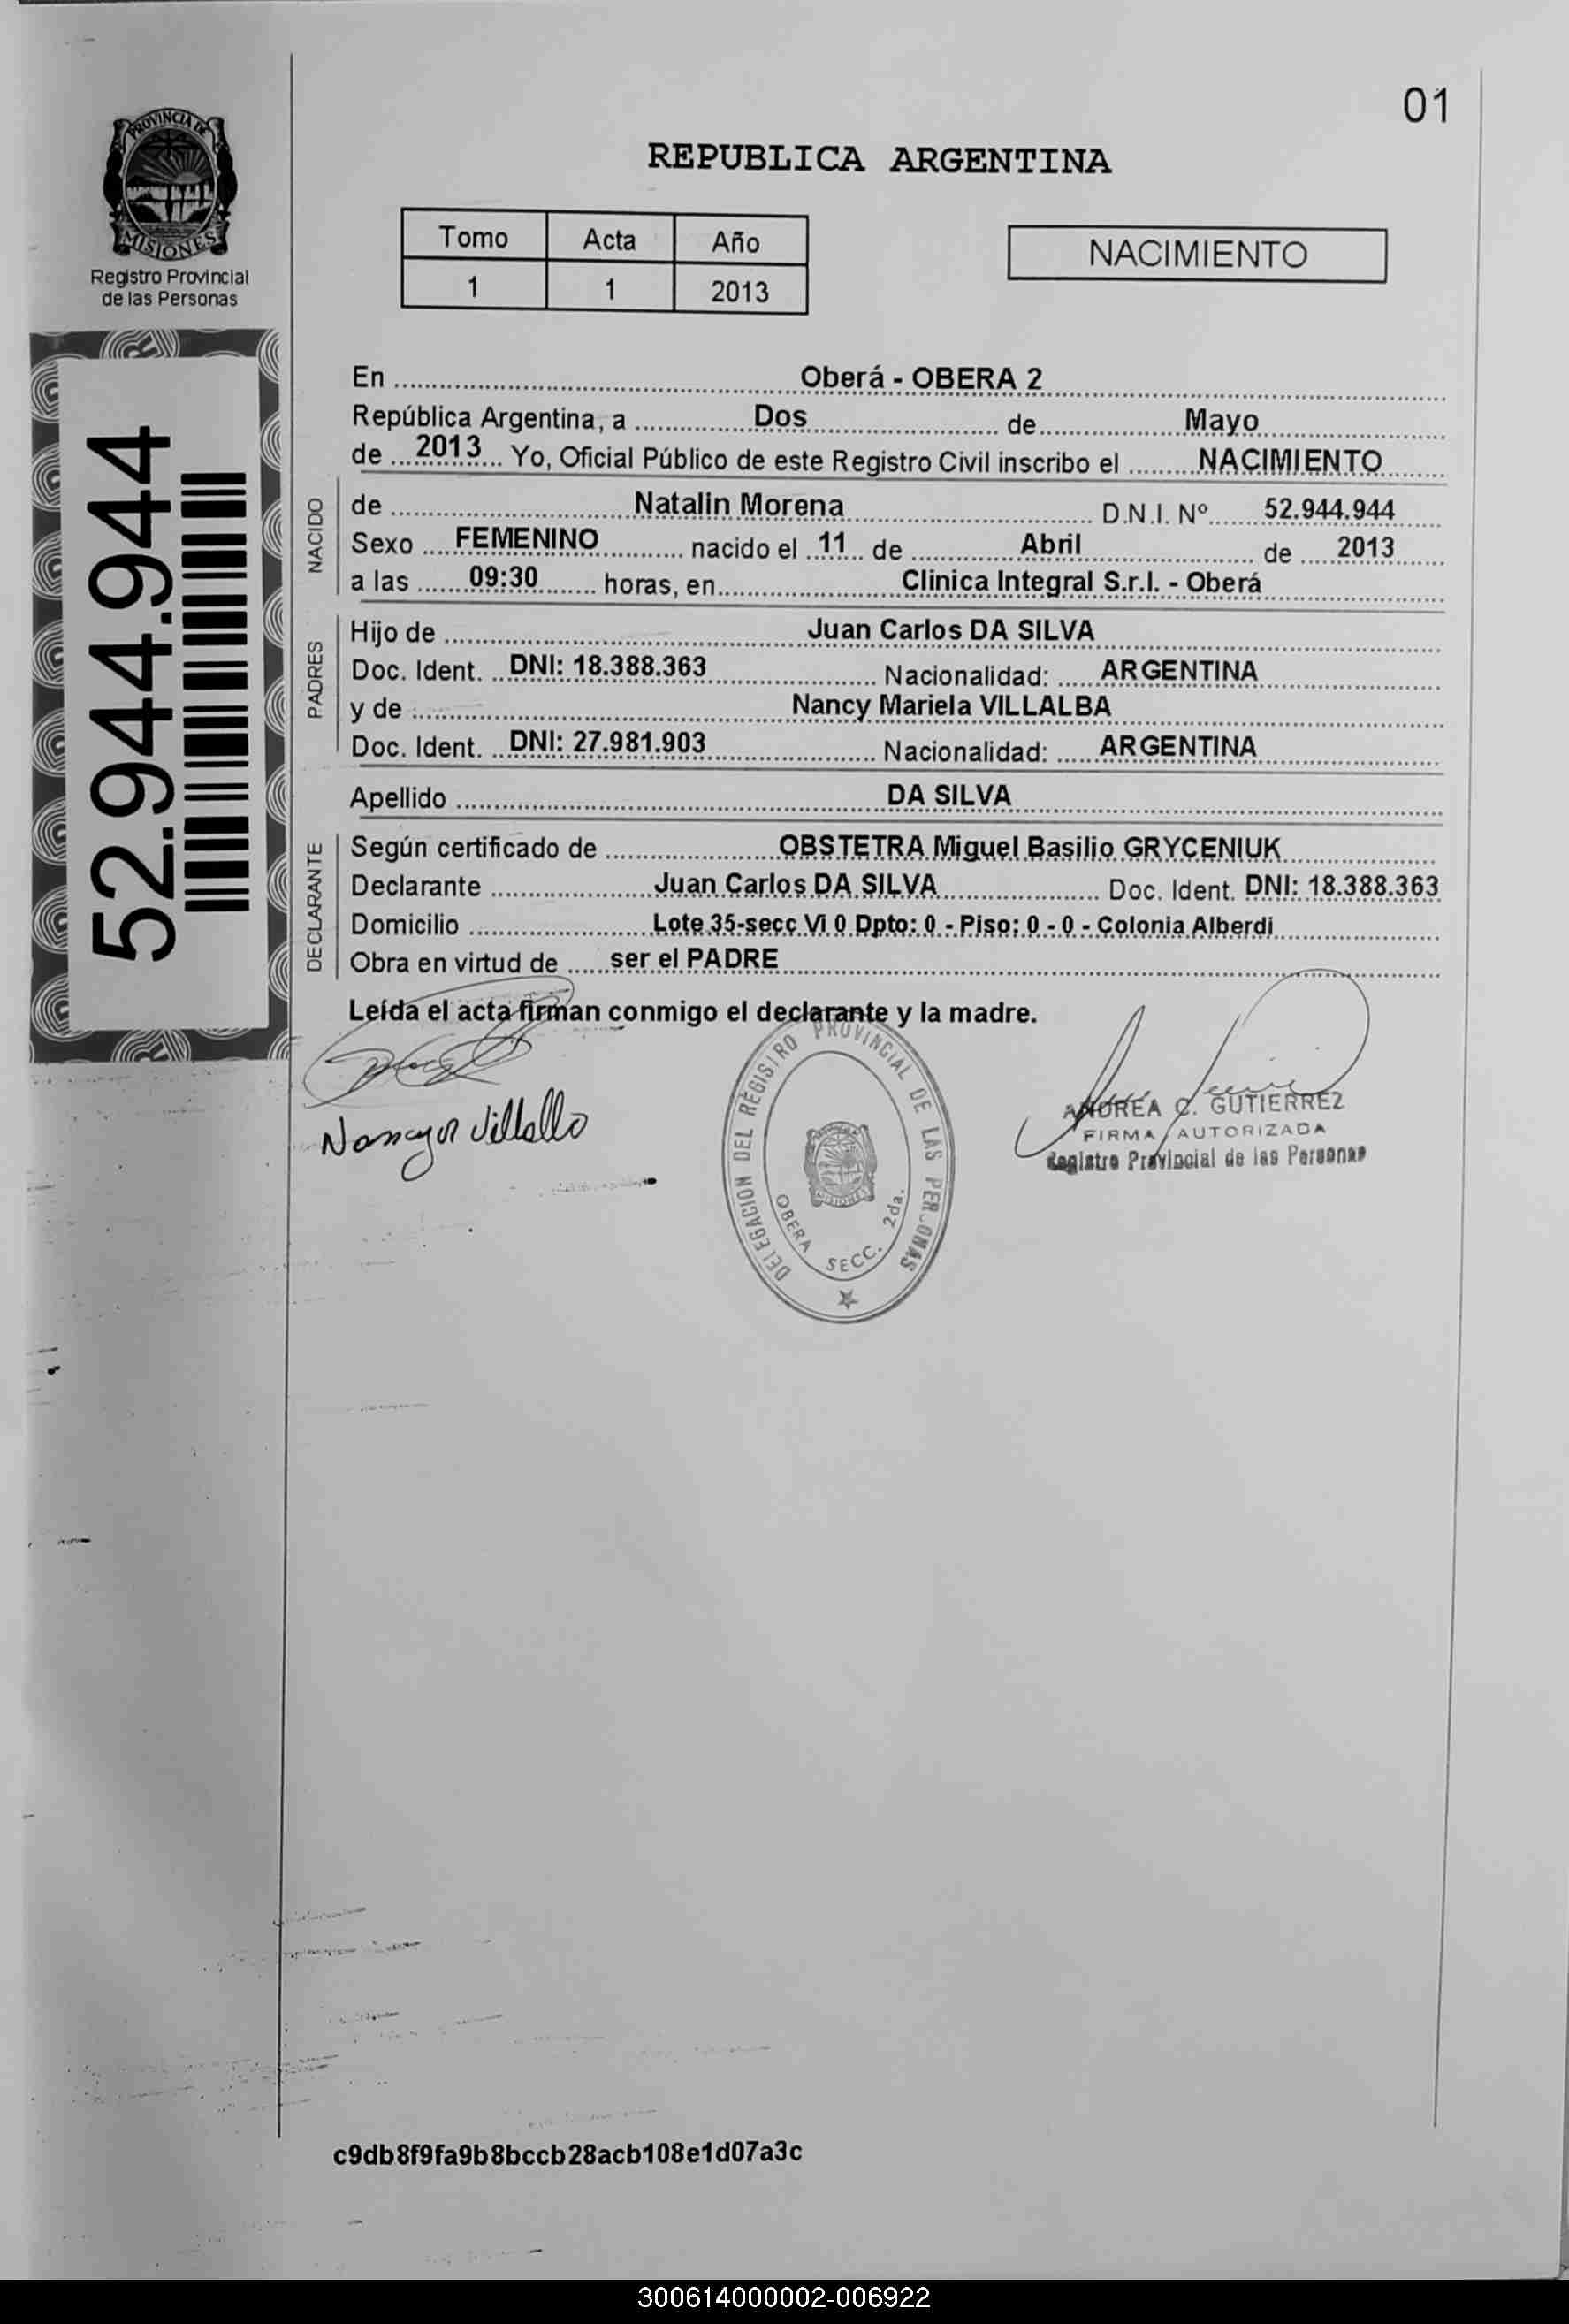 01
PROVINCIA DE
MISIONES
Registro Provincial
de las Personas
REPUBLICA ARGENTINA
Tomo Acta Año
1 1 2013
NACIMIENTO
52.944.944
En Oberá - OBERA 2
República Argentina, a Dos de Mayo
de 2013 Yo, Oficial Público de este Registro Civil inscribo el NACIMIENTO
NACIDO
de Natalin Morena D.N.I. Nº 52.944.944
Sexo FEMENINO nacido el 11 de Abril de 2013
a las 09:30 horas, en Clinica Integral S.r.l. - Oberá
PADRES
Hijo de Juan Carlos DA SILVA
Doc. Ident. DNI: 18.388.363 Nacionalidad: ARGENTINA
y de Nancy Mariela VILLALBA
Doc. Ident. DNI: 27.981.903 Nacionalidad: ARGENTINA
Apellido DA SILVA
DECLARANTE
Según certificado de OBSTETRA Miguel Basilio GRYCENIUK
Declarante Juan Carlos DA SILVA Doc. Ident. DNI: 18.388.363
Domicilio Lote 35-secc Vi 0 Dpto: 0 - Piso: 0 - 0 - Colonia Alberdi
Obra en virtud de ser el PADRE
Leída el acta firman conmigo el declarante y la madre.
DELEGACION DEL REGISTRO PROVINCIAL DE LAS PERSONAS
OBERA SECC. 2da.
MISIONES
ANDREA C. GUTIERREZ
FIRMA AUTORIZADA
Registro Provincial de las Personas
c9db8f9fa9b8bccb28acb108e1d07a3c
300614000002-006922